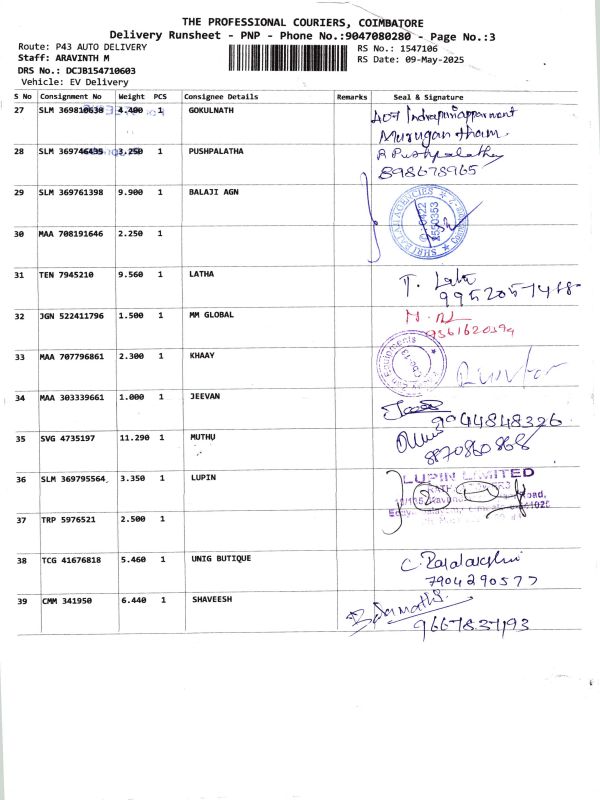 THE PROFESSIONAL COURIERS, COIMBATORE
Delivery Runsheet - PNP - Phone No.:9047080280 - Page No.:3
Route: P43 AUTO DELIVERY
RS No.: 1547106
Staff: ARAVINTH M
RS Date: 09-May-2025
DRS No.: DCJB154710603
Vehicle: EV Delivery
S No Consignment No Weight PCS Consignee Details Remarks Seal & Signature
27 SLM 369810630 4.400 1 GOKULNATH
Murugan
28 SLM 369746435 3.250 1 PUSHPALATHA
R Pushpalatha
898678965
29 SLM 369761398 9.900 1 BALAJI AGN
SHRI BALAJI AGENCIES
30 MAA 708191646 2.250 1
31 TEN 7945210 9.560 1 LATHA
T. Latha
32 JGN 522411796 1.500 1 MM GLOBAL
33 MAA 707796861 2.300 1 KHAAY
34 MAA 303339661 1.000 1 JEEVAN
9044848326
35 SVG 4735197 11.290 1 MUTHU
8870860868
36 SLM 369795564 3.350 1 LUPIN
LUPIN LIMITED
37 TRP 5976521 2.500 1
38 TCG 41676818 5.460 1 UNIG BUTIQUE
7904290577
39 CMM 341950 6.440 1 SHAVEESH